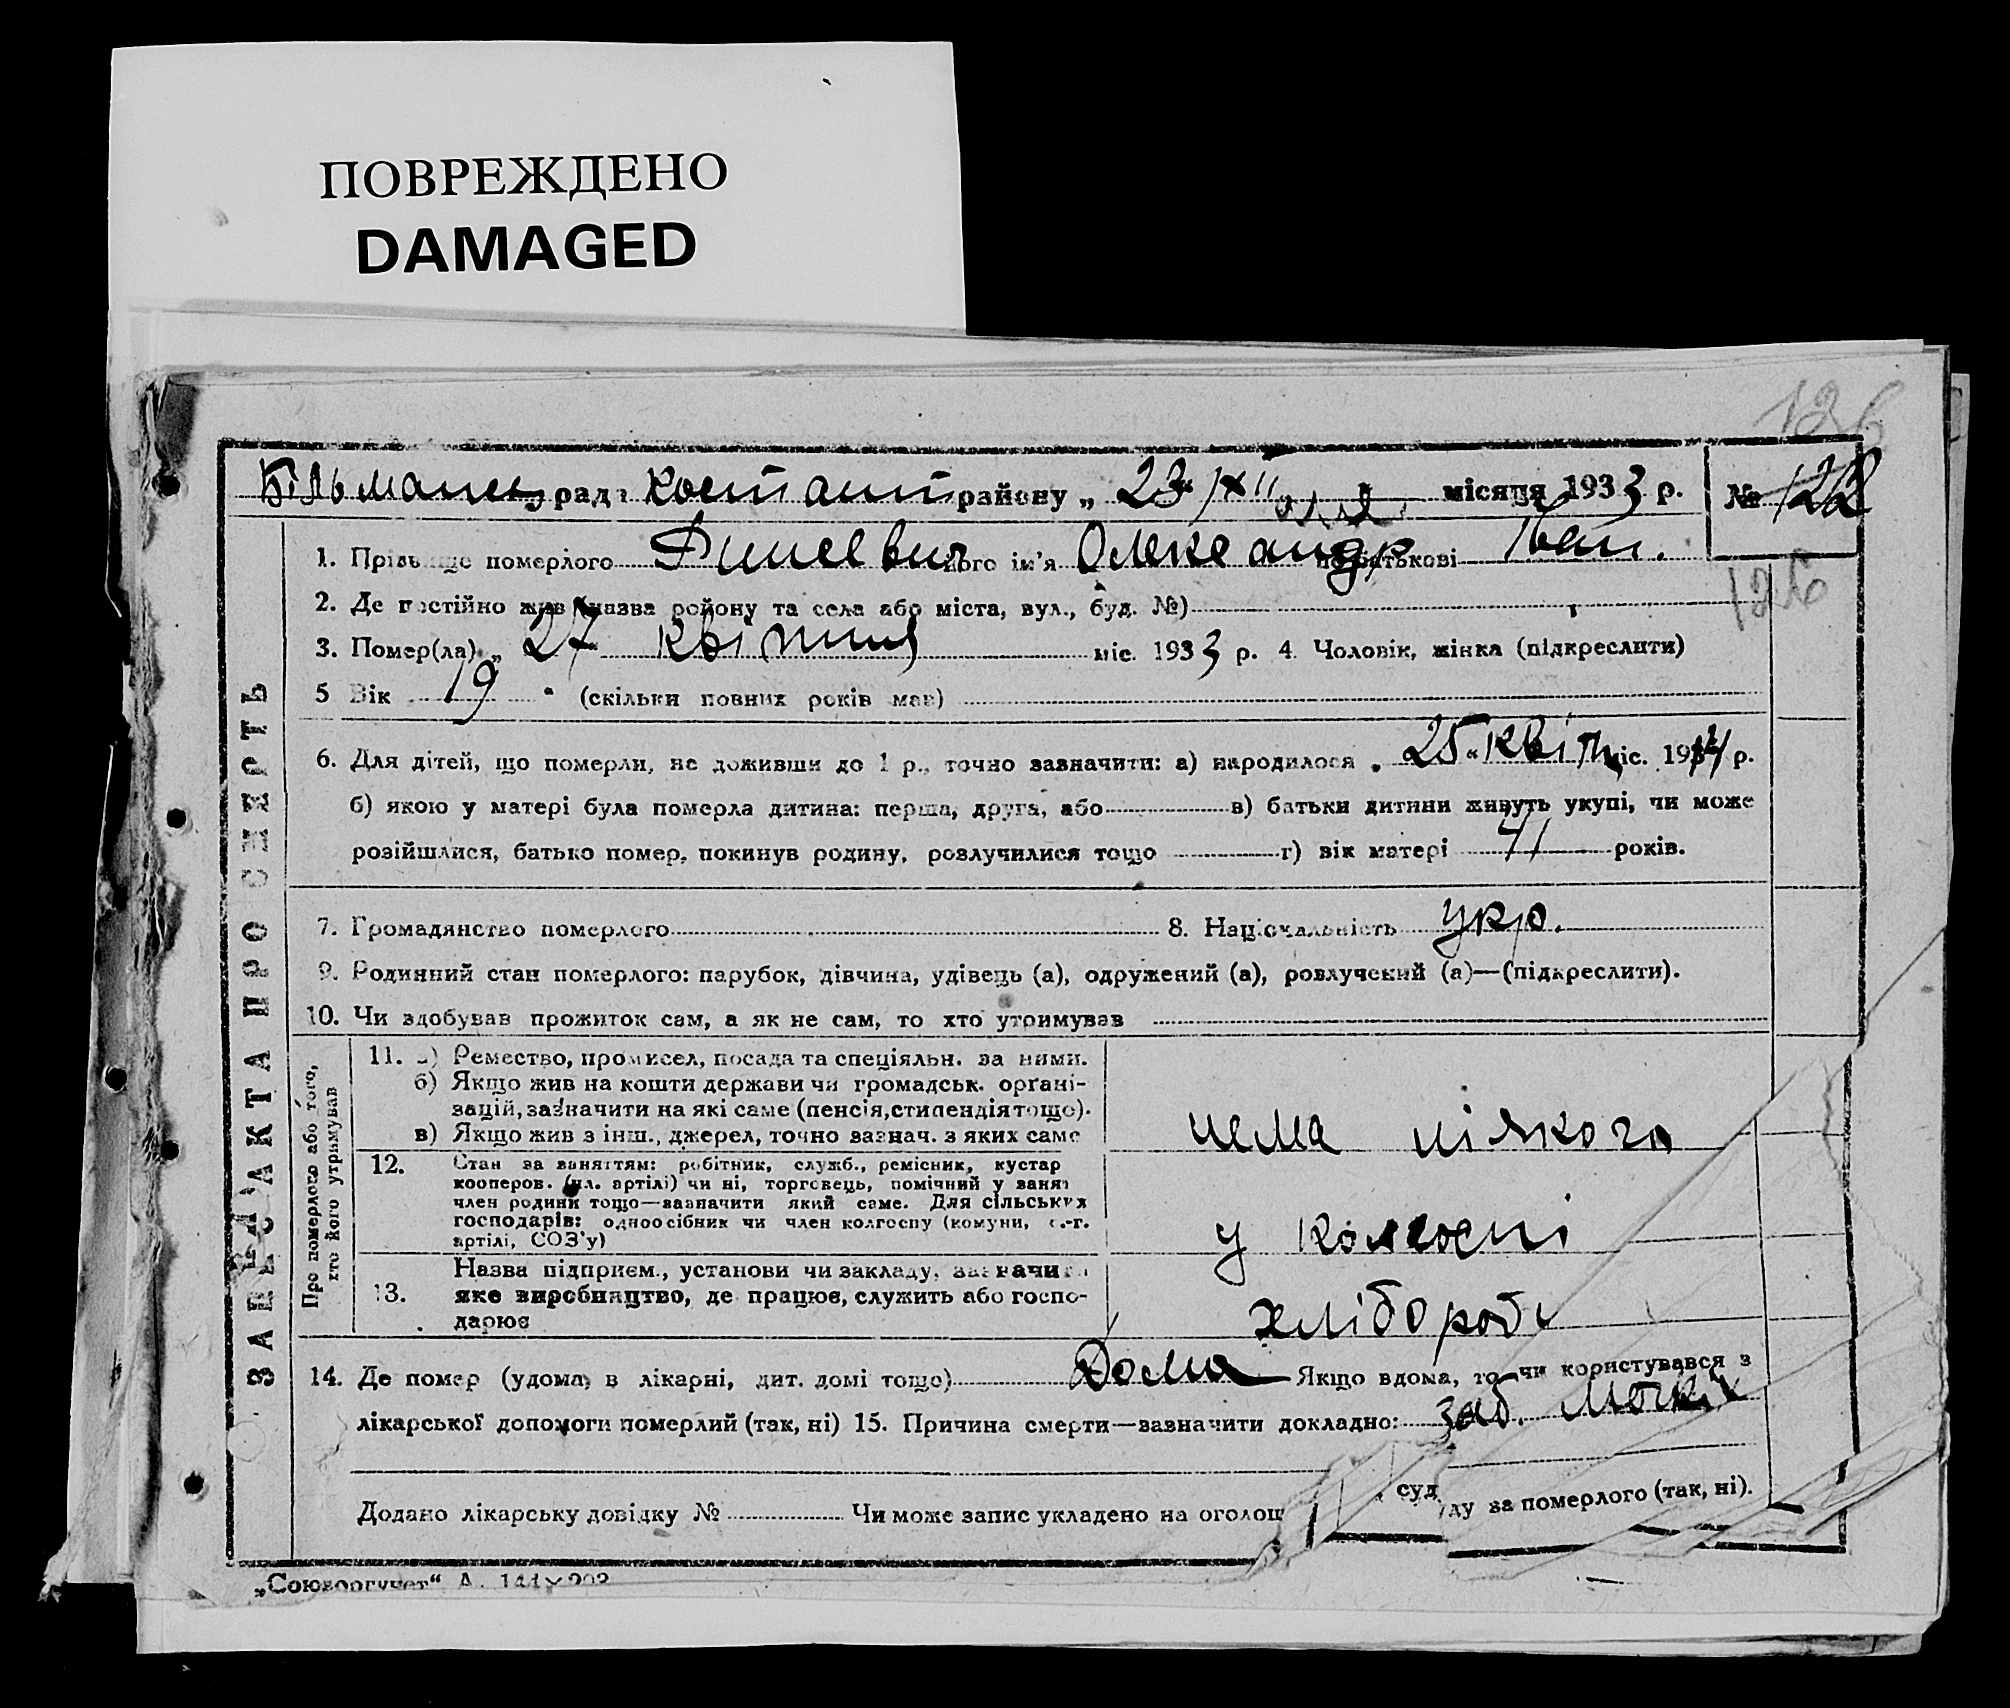 ПОВРЕЖДЕНО
DAMAGED
126
Більманк рада Костянт району „ 23 " XII місяця 1933 р. № 122
126
1. Прізвище померлого його ім'я Олександр по батькові Іван.
2. Де постійно жив (назва району та села або міста, вул., буд. №)
3. Помер(ла) „ 27 квітня міс. 1933 р. 4. Чоловік, жінка (підкреслити)
5 Вік 19 (скільки повних років мав)
6. Для дітей, що померли, не доживши до 1 р., точно зазначити: а) народилося „ 25 " квітн міс. 1914 р.
б) якою у матері була померла дитина: перша, друга, або в) батьки дитини живуть укупі, чи може
розійшлися, батько помер, покинув родину, розлучилися тощо г) вік матері 41 років.
7. Громадянство померлого 8. Національність укр.
9. Родинний стан померлого: парубок, дівчина, удівець (а), одружений (а), розлучений (а)—(підкреслити).
10. Чи здобував прожиток сам, а як не сам, то хто утримував
ЗАПИС АКТА ПРО СМЕРТЬ
Про померлого або того, хто його утримував
11. а) Ремество, промисел, посада та спеціяльн. за ними.
б) Якщо жив на кошти держави чи громадськ. орґані-
зацій, зазначити на які саме (пенсія, стипендія тощо).
в) Якщо жив з інш., джерел, точно зазнач. з яких саме
нема ніякого
12. Стан за заняттям: робітник, служб., ремісник, кустар
кооперов. (чл. артілі) чи ні, торговець, помічний у занят
член родини тощо—зазначити який саме. Для сільських
господарів: одноосібник чи член колгоспу (комуни, с.-г.
артілі, СОЗ'у)
у колгоспі
13. Назва підприєм., установи чи закладу, зазначити
яке виробництво, де працює, служить або госпо-
дарює
хлібороб
14. Де помер (удома, в лікарні, дит. домі тощо) Дома Якщо вдома, то чи користувався з
лікарської допомоги померлий (так, ні) 15. Причина смерти—зазначити докладно: заб.
Додано лікарську довідку № Чи може запис укладено на оголош суд ду за померлого (так, ні).
„Союзоргучет"